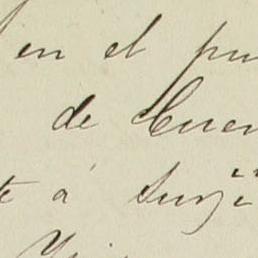 en el pu
de Cuen
te á Surji